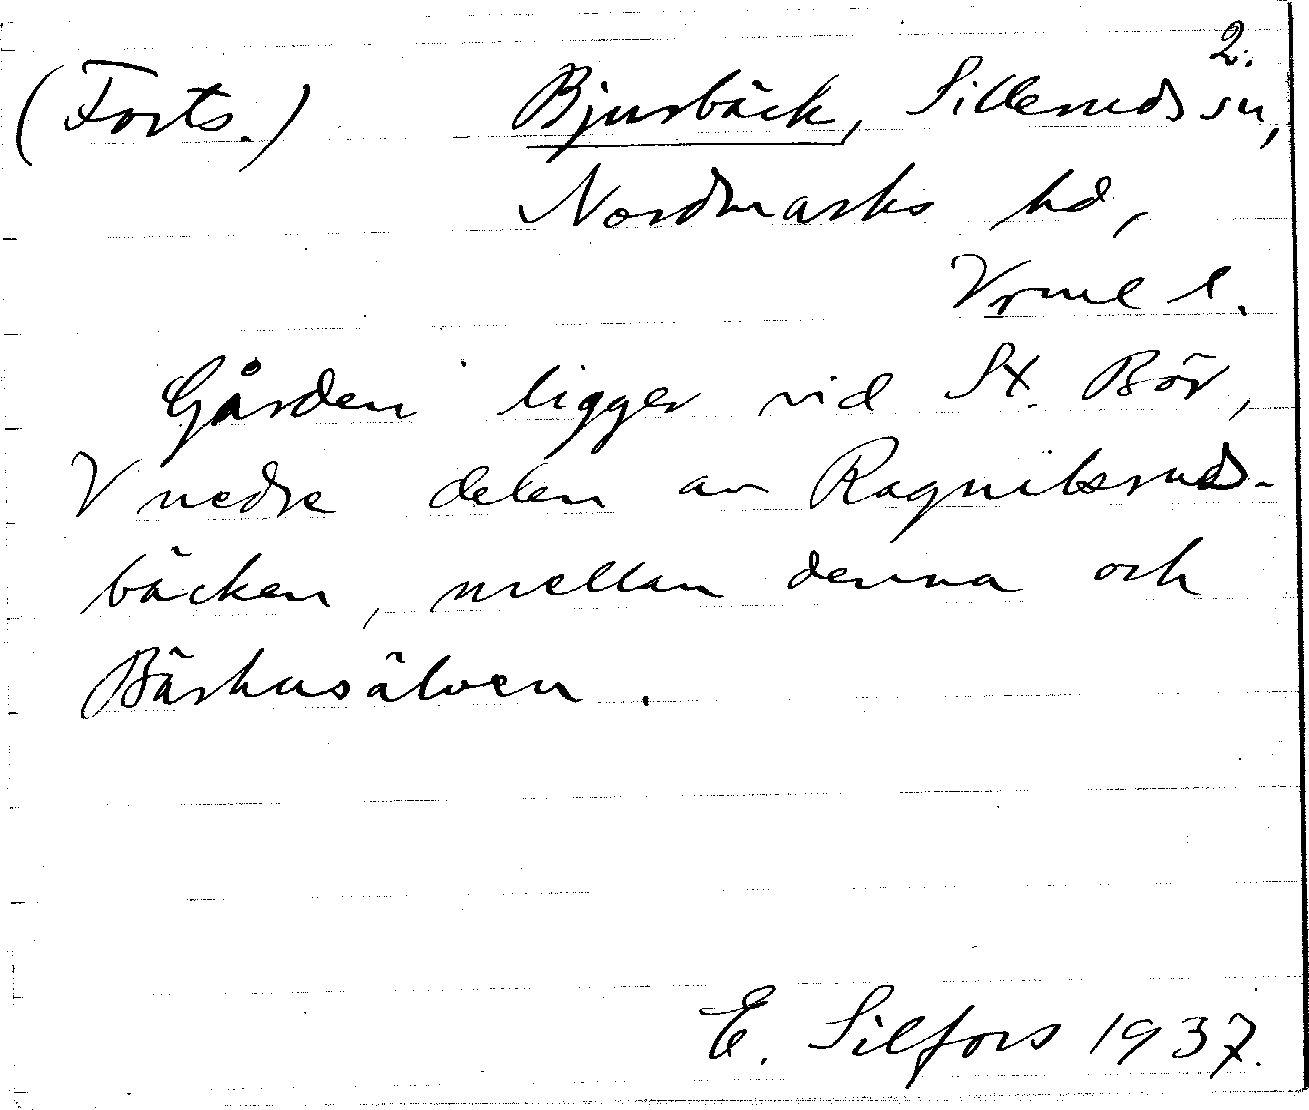 2.
(Forts.) Bjurbäck, Sillerudssn,
Nordmarks hd,
Vrml l.
Gården ligger vid St. Bör,
V nedre delen av Ragnilsruds-
bäcken, mellan denna och
Bärhusälven.
E. Silfors 1937.